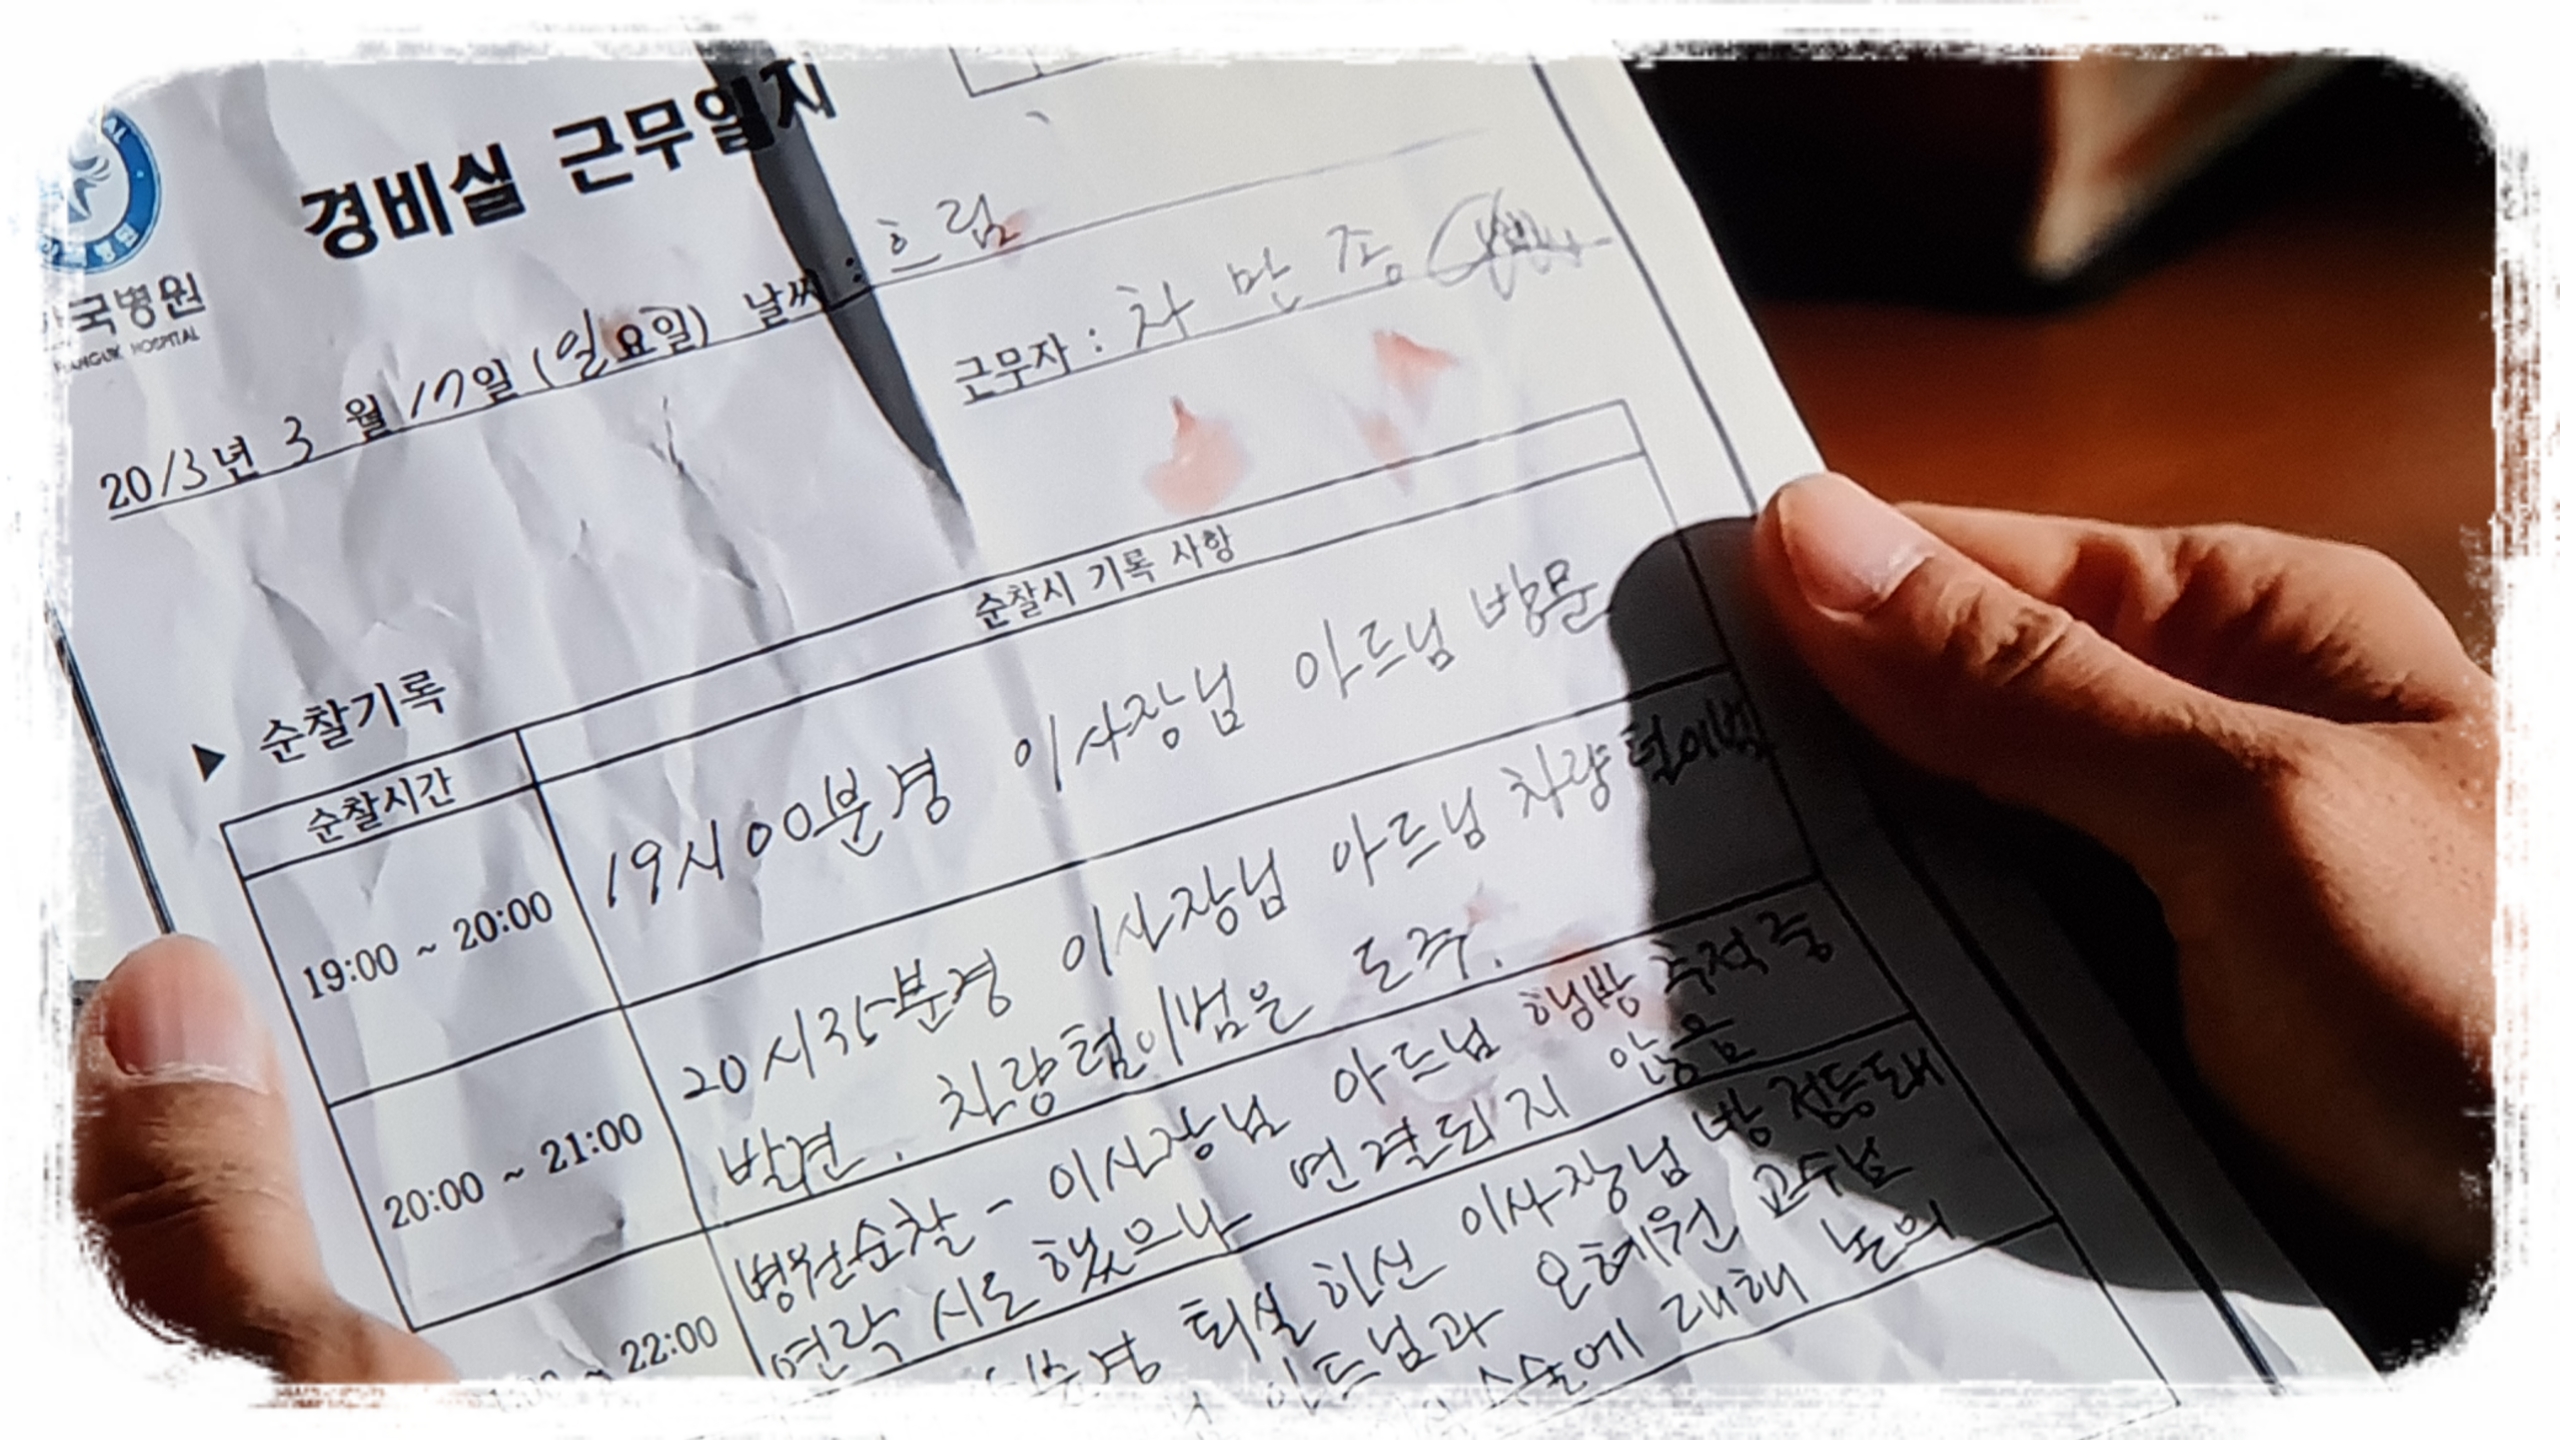 경비실 근무일지
국병원
HOSPITAL
2013년 3월 17일 (일요일) 날씨 : 흐림
근무자 : 차 만 종
▶ 순찰기록
순찰시간 순찰시 기록 사항
19:00 ~ 20:00 19시 00분경 이사장님 아드님 방문
20:00 ~ 21:00 20시 35분경 이사장님 아드님 차량 털이범
발견. 차량털이범은 도주.
~ 22:00 병원순찰 - 이사장님 아드님 행방 추적 중
연락 시도 했으나 연결되지 않음
퇴실 하신 이사장님 방 점등돼
아드님과 오혜원 교수님
수술에 대해 논의